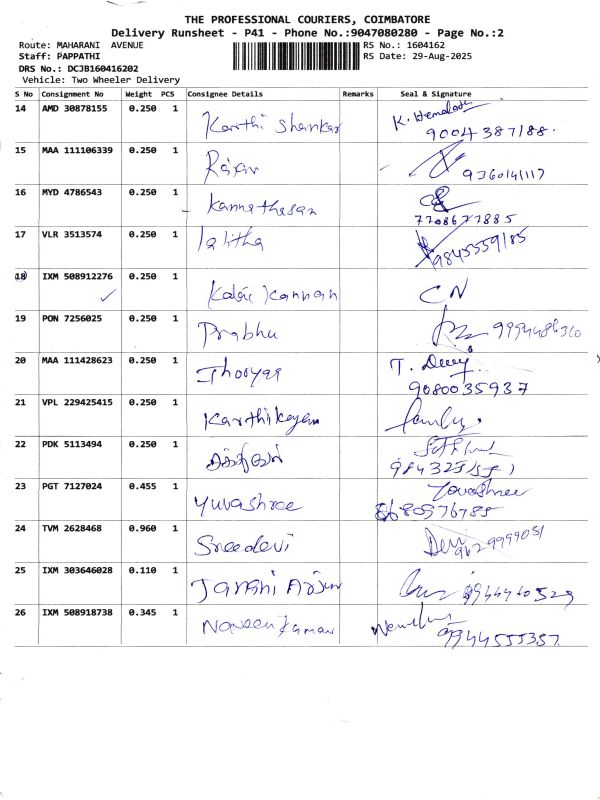 THE PROFESSIONAL COURIERS, COIMBATORE
Delivery Runsheet - P41 - Phone No.:9047080280 - Page No.:2
Route: MAHARANI AVENUE RS No.: 1604162
Staff: PAPPATHI RS Date: 29-Aug-2025
DRS No.: DCJB160416202
Vehicle: Two Wheeler Delivery
S No Consignment No Weight PCS Consignee Details Remarks Seal & Signature
14 AMD 30878155 0.250 1 Karthi Shankar K. Hemalatha
9004387188.
15 MAA 111106339 0.250 1 Rajan
9360141117
16 MYD 4786543 0.250 1 Kannathasan
7708677885
17 VLR 3513574 0.250 1 lalitha
9845559185
18 IXM 508912276 0.250 1 Kalai Kannan CN
19 PON 7256025 0.250 1 Prabhu 9994486360
20 MAA 111428623 0.250 1 T. Devi
9080035937
21 VPL 229425415 0.250 1 Karthikeyan family.
22 PDK 5113494 0.250 1
23 PGT 7127024 0.455 1 Yuvashree Yovashree
8680976785
24 TVM 2628468 0.960 1 Sreedevi Devi
9629999051
25 IXM 303646028 0.110 1 Janani Arjun 9944440529
26 IXM 508918738 0.345 1 Naveen Kumar
9944555357